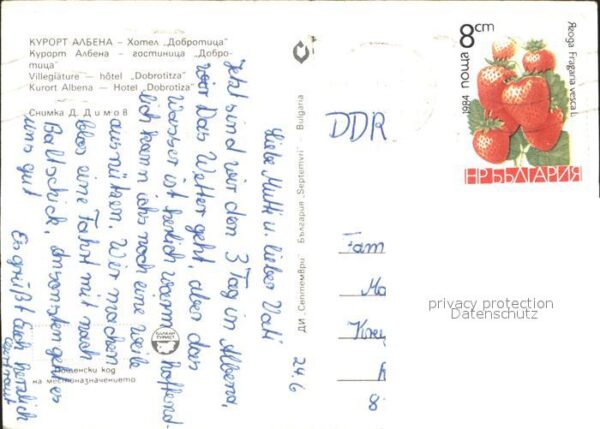 КУРОРТ АЛБЕНА – Хотел „Добротица"
Курорт Албена – гостиница „Добро-
тица"
Villegiature — hôtel „Dobrotitza"
Kurort Albena — Hotel „Dobrotiza"
Снимка Д. Димов
24.6
Liebe Mutti u. lieber Vati
Jetzt sind wir den 3 Tag in Albena,
Das Wetter geht, aber das
Wasser ist herlich warm hoffend-
lich kann ichs noch eine Weile
ausnützen. Wir machen
eine Fahrt mit nach
Baltschick, ansonsten geht es
uns gut
Es grüßt Euch herzlich
БАЛКАН
ТУРИСТ
Пощенски код
на местоназначението
ДИ „Септември" България „Septemvri" Bulgaria
DDR
Fam
Mo
8
privacy protection
Datenschutz
8 cm
поща
1984
Ягода Fragaria vesca L.
НР БЪЛГАРИЯ